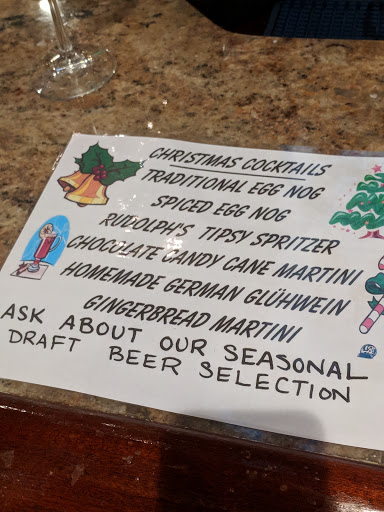 CHRISTMAS COCKTAILS
TRADITIONAL EGG NOG
SPICED EGG NOG
RUDOLPH'S TIPSY SPRITZER
CHOCOLATE CANDY CANE MARTINI
HOMEMADE GERMAN GLÜHWEIN
GINGERBREAD MARTINI
ASK ABOUT OUR SEASONAL
DRAFT BEER SELECTION